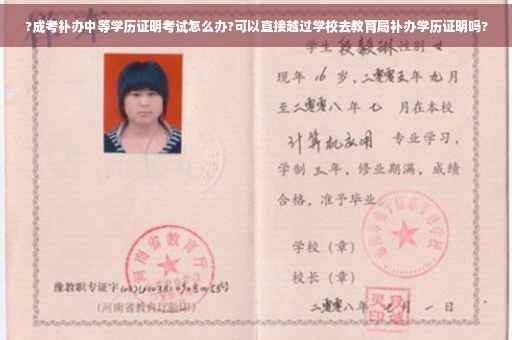 ?成考补办中等学历证明考试怎么办?可以直接越过学校去教育局补办学历证明吗?
学生段毅琳性别女
现年 16 岁，二零零五年 九月
至二零零八年 七 月在本校
计算机应用 专业学习，
学制 三 年，修业期满，成绩
合格，准予毕业
学校（章）
校长（章）
二零零八年 七 月 一 日
河南省教育厅
豫教职专证字
（河南省教育厅验印）